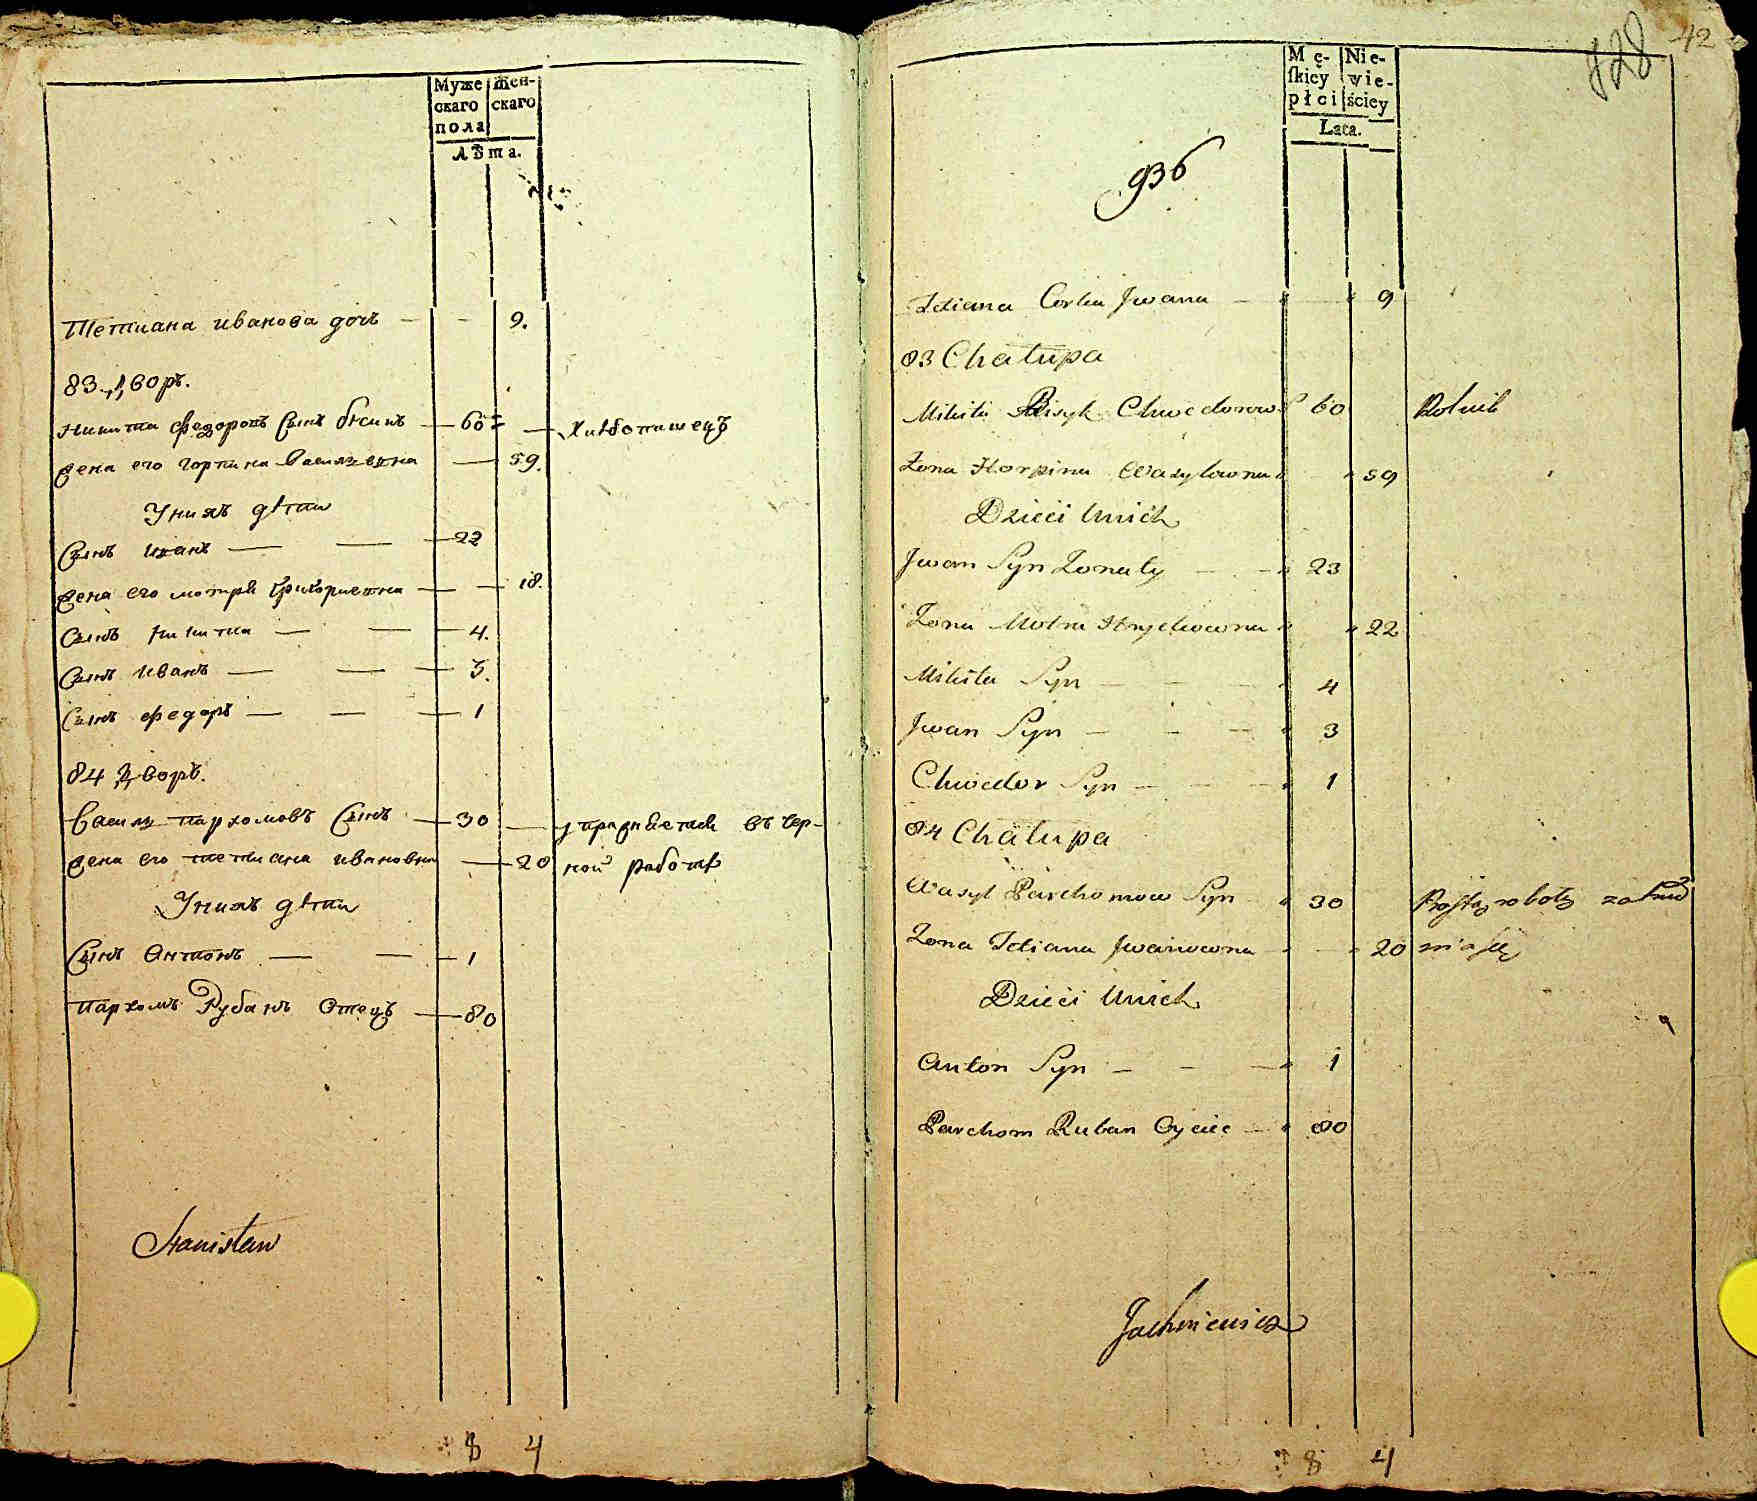 Муже
скаго
пола
Жен-
скаго
лѣта.
Тетиана иванова дочь — — 9.
83. дворъ.
Никита федоровъ Сынъ — 60 — Хлѣбопашецъ
жена его горпина васильевна — 59.
Унихъ дѣти
Сынъ иванъ — — 22
жена его мотря григориевна — — 18.
Сынъ никита — — 4.
Сынъ иванъ — — 3.
Сынъ федоръ — — 1
84 дворъ.
Василь пархомовъ Сынъ — 30 — упражняется въ чер-
жена его тетиана ивановна — 20 ной работѣ
Унихъ дѣти
Сынъ Антонъ — — 1
пархомъ Рубанъ Отецъ — 80
Stanisław
8 4
42
828
Mę-
skiey
płci
Nie-
wie-
ściey
Lata.
936
Tetiana Corka Jwana — 9
83 Chałupa
Mikita Chwedorow S 60 Rolnik
Zona Horpina Wasylowna 59
Dzieci Unich
Jwan Syn Zonaty — — 23
Zona Motra Hrychowna 22
Mikita Syn — — — 4
Jwan Syn — — — 3
Chwedor Syn — — — 1
84 Chałupa
Wasyl Parchomow Syn 30 Prostą robotą zatrud
Zona Tetiana Jwanowna — — 20 nia się
Dzieci Unich
Anton Syn — — — 1
Parchom Ruban Oyciec — 80
Jachniewicz
8 4